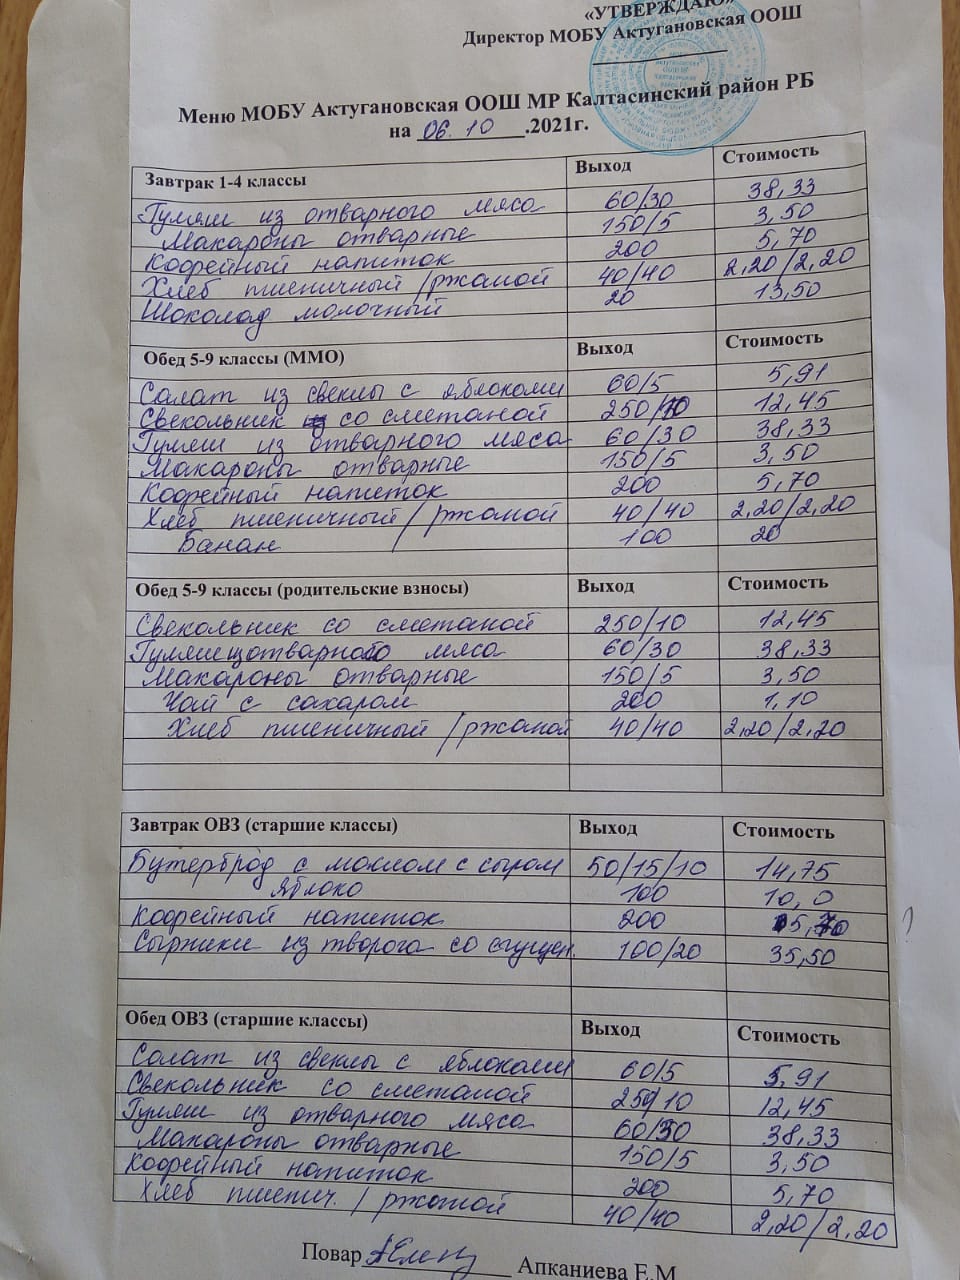 «УТВЕРЖДАЮ»
Директор МОБУ Актугановская ООШ
Меню МОБУ Актугановская ООШ МР Калтасинский район РБ
на 06.10.2021г.
Завтрак 1-4 классы Выход Стоимость
Гуляш из отварного мяса 60/30 38,33
Макароны отварные 150/5 3,50
Кофейный напиток 200 5,70
Хлеб пшеничный /ржаной 40/40 2,20/2,20
Шоколад молочный 20 13,50
Обед 5-9 классы (ММО) Выход Стоимость
Салат из свеклы с яблоками 60/5 5,91
Свекольник со сметаной 250/10 12,45
Гуляш из отварного мяса 60/30 38,33
Макароны отварные 150/5 3,50
Кофейный напиток 200 5,70
Хлеб пшеничный /ржаной 40/40 2,20/2,20
Банан 100 20
Обед 5-9 классы (родительские взносы) Выход Стоимость
Свекольник со сметаной 250/10 12,45
Гуляш изотварного мяса 60/30 38,33
Макароны отварные 150/5 3,50
Чай с сахаром 200 1,10
Хлеб пшеничный /ржаной 40/40 2,20/2,20
Завтрак ОВЗ (старшие классы) Выход Стоимость
Бутерброд с маслом с сыром 50/15/10 14,75
Яблоко 100 10,0
Кофейный напиток 200 5,70
Сырники из творога со сгущен. 100/20 35,50
Обед ОВЗ (старшие классы) Выход Стоимость
Салат из свеклы с яблоками 60/5 5,91
Свекольник со сметаной 250/10 12,45
Гуляш из отварного мяса 60/30 38,33
Макароны отварные 150/5 3,50
Кофейный напиток 200 5,70
Хлеб пшенич. /ржаной 40/40 2,20/2,20
Повар Апканиева Е.М